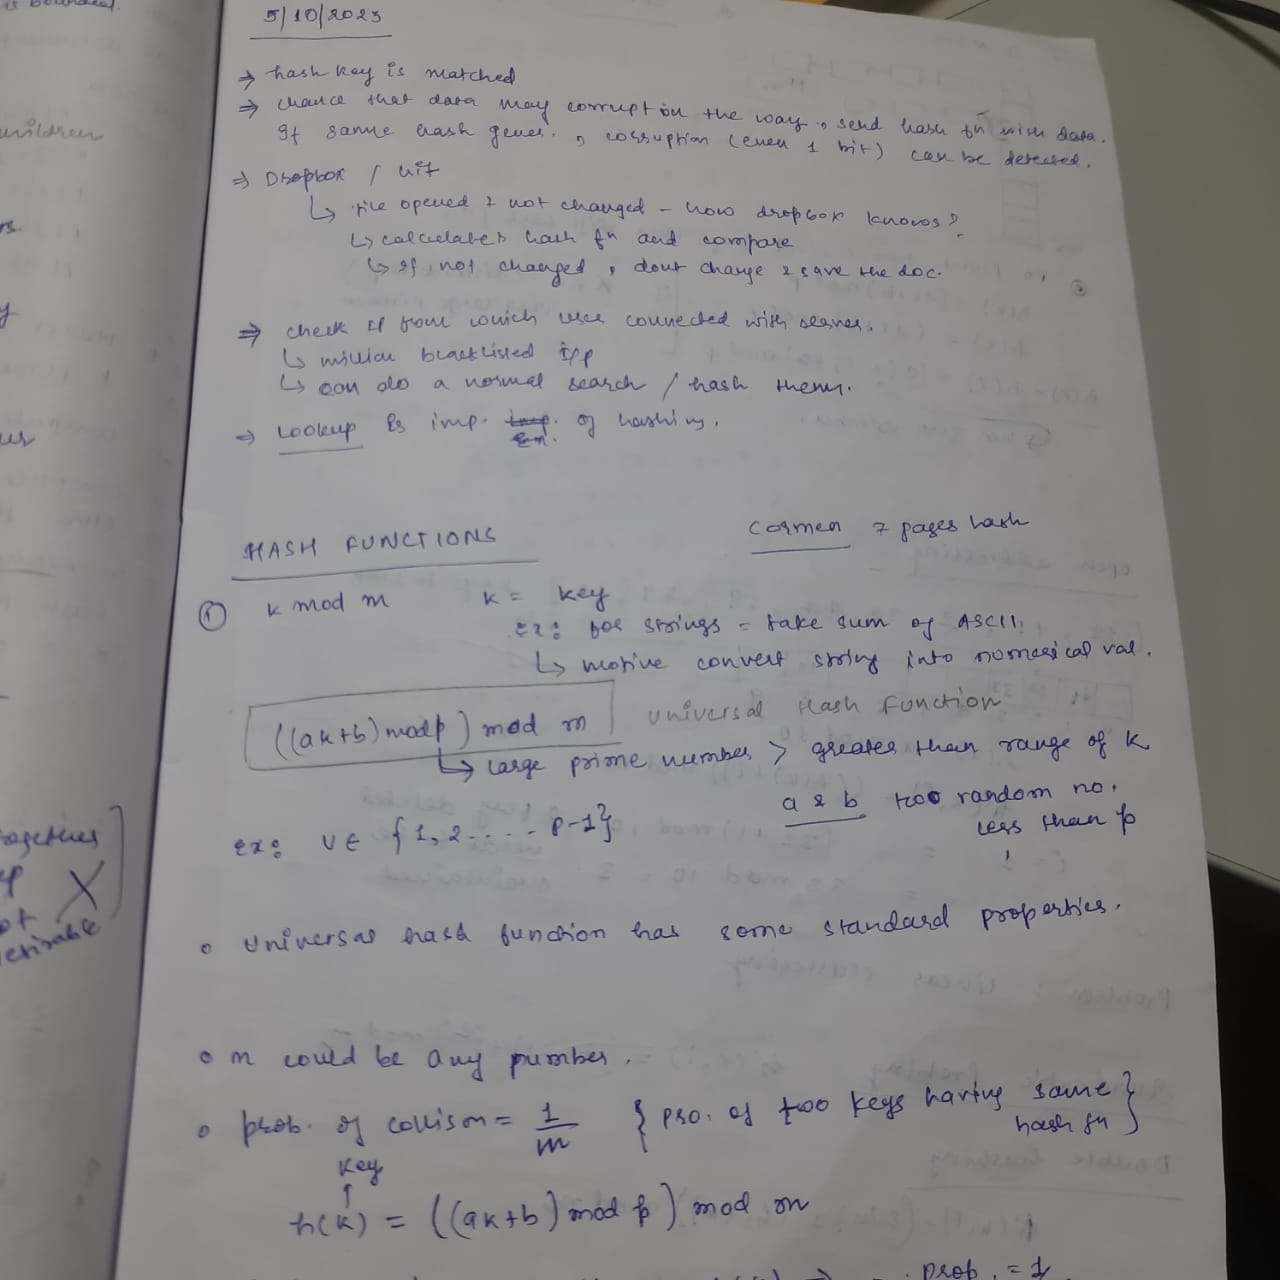 5/10/2023
⇒ hash key is matched
⇒ chance that data may corrupt on the way, send hash fn with data.
If same hash gener., corruption (even 1 bit) can be detected.
⇒ Dropbox / Git
↳ file opened & not changed - how dropbox knows?
↳ calculates hash fn and compare
↳ If not changed, dont change & save the doc.
⇒ check IP from which user connected with server.
↳ million blacklisted I/P
↳ can do a normal search / hash them.
⇒ Lookup is imp. of hashing.
HASH FUNCTIONS
Cormen 7 pages hash
① k mod m k = key
Ex: for strings = take sum of ASCII,
↳ motive convert string into numerical val.
((ak+b) mod p) mod m Universal Hash Function
↳ large prime number > greater than range of k
a & b two random no.
less than p
ex: U ∈ {1, 2 ..... p-1}
• Universal hash function has some standard properties.
• m could be any number.
• prob. of collison = 1/m { pro. of two keys having same
hash fn }
key
↑
h(k) = ((ak+b) mod p) mod m
prob. = 1
is bounded.
children
together
X
not
desirable